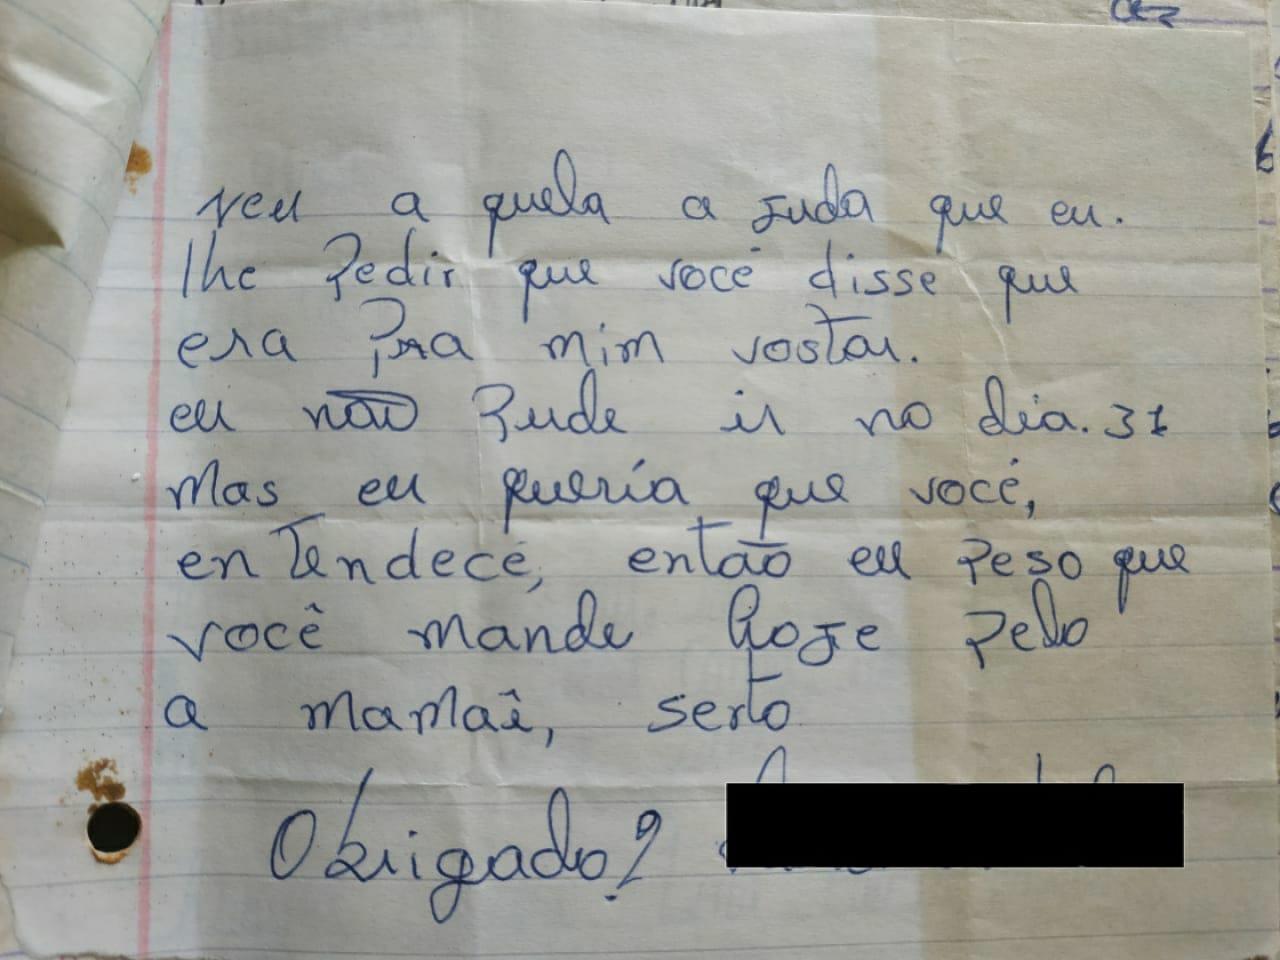 veu a quela a juda que eu.
lhe Pedir que você disse que
era Pra mim vostar.
eu não Pude ir no dia. 31
Mas eu queria que você,
entendecê, então eu Peso que
você mande hoje Pelo
a mamaê, serto
Obrigado?